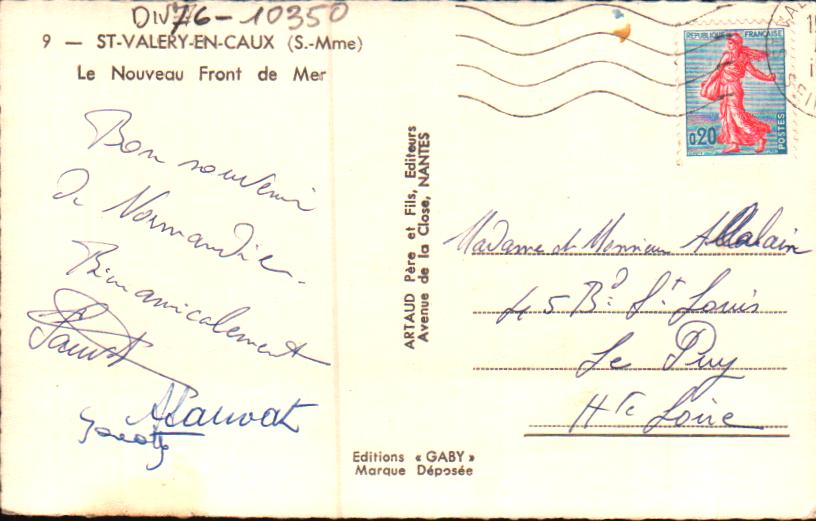 DIV 76-10350
9 — ST-VALERY-EN-CAUX (S.-Mme)
Le Nouveau Front de Mer
Bon souvenir
de Normandie.
Bien amicalement
ARTAUD Père et Fils, Editeurs
Avenue de la Close, NANTES
Editions « GABY »
Marque Déposée
REPUBLIQUE FRANÇAISE
0,20
POSTES
Madame et Monsieur
45 Bd St Louis
Le Puy
Hte Loire